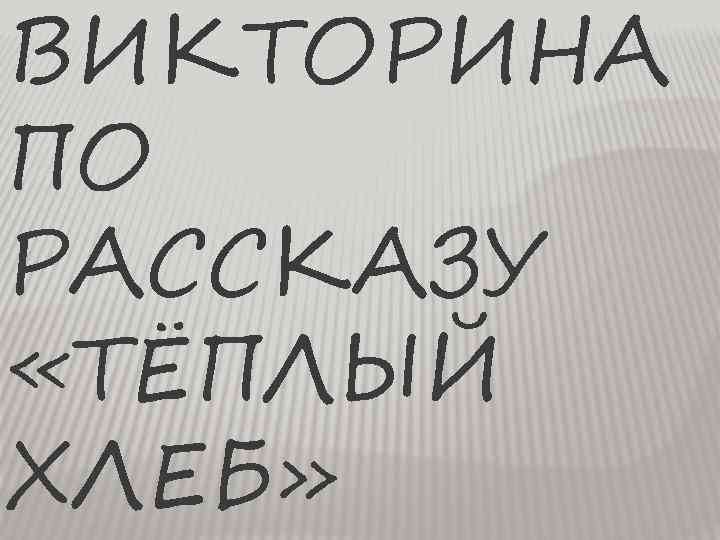 ВИКТОРИНА
ПО
РАССКАЗУ
«ТЁПЛЫЙ
ХЛЕБ»